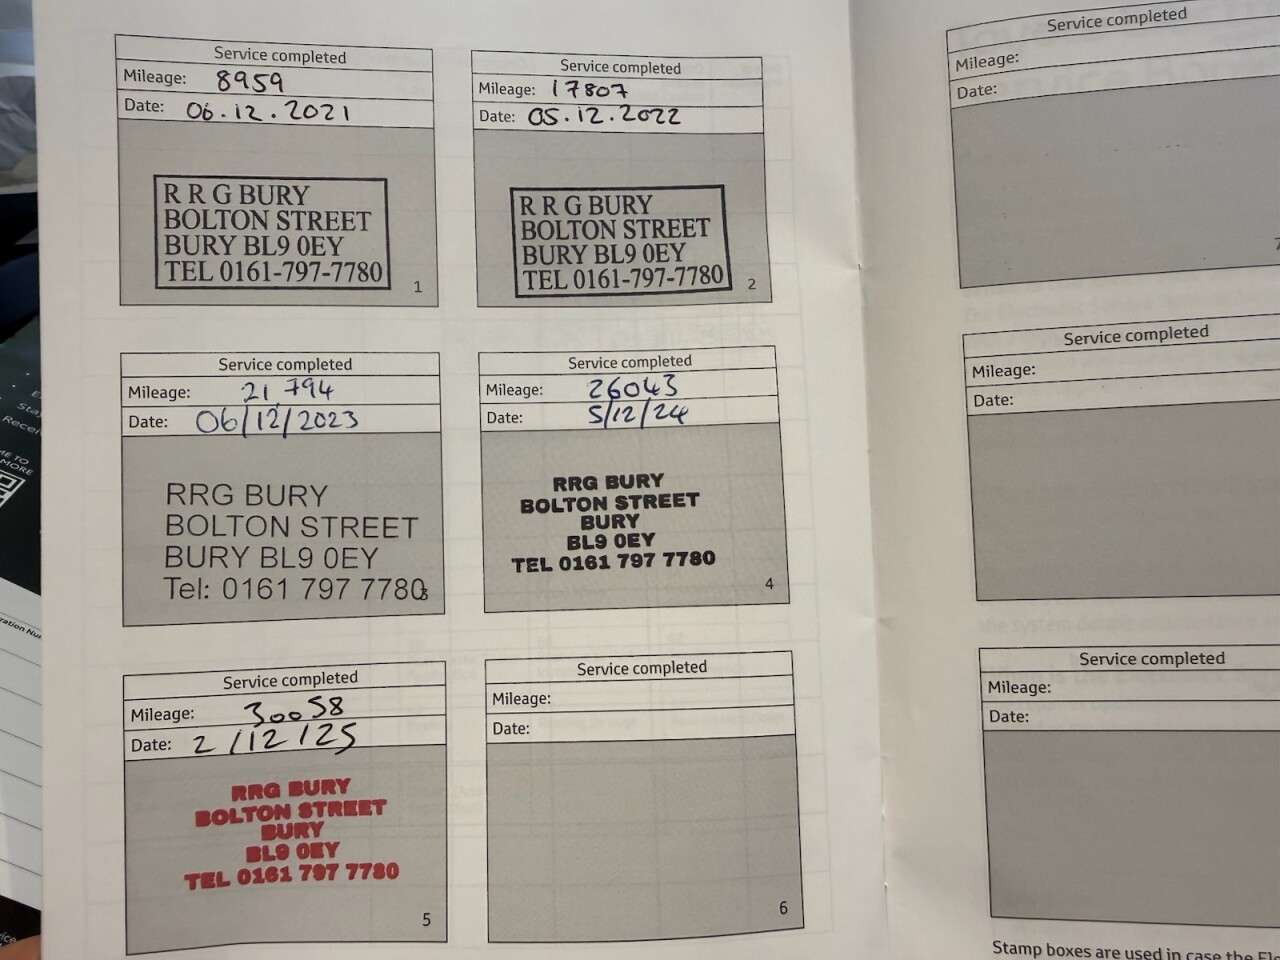 Service completed
Mileage: 8959
Date: 06.12.2021
R R G BURY
BOLTON STREET
BURY BL9 0EY
TEL 0161-797-7780
1
Service completed
Mileage: 17807
Date: 05.12.2022
R R G BURY
BOLTON STREET
BURY BL9 0EY
TEL 0161-797-7780
2
Service completed
Mileage: 21,794
Date: 06/12/2023
RRG BURY
BOLTON STREET
BURY BL9 0EY
Tel: 0161 797 7780
3
Service completed
Mileage: 26043
Date: 5/12/24
RRG BURY
BOLTON STREET
BURY
BL9 0EY
TEL 0161 797 7780
4
Service completed
Mileage: 30058
Date: 2/12/25
RRG BURY
BOLTON STREET
BURY
BL9 0EY
TEL 0161 797 7780
5
Service completed
Mileage:
Date:
6
Service completed
Mileage:
Date:
7
Service completed
Mileage:
Date:
Service completed
Mileage:
Date:
Stamp boxes are used in case the